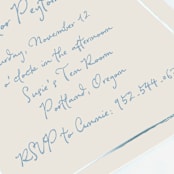 Peyton
November 12
o'clock in the afternoon
Susie's Tea Room
Portland, Oregon
RSVP to Connie: 952.544.05